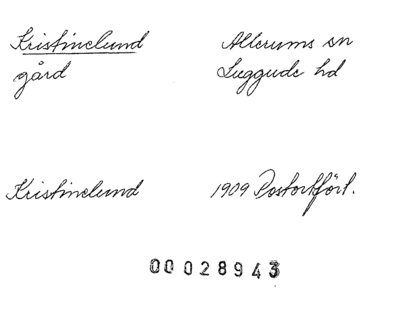 Kristinelund Allerums sn
gård Luggude hd
Kristinelund 1909 Postortfört.
00028943